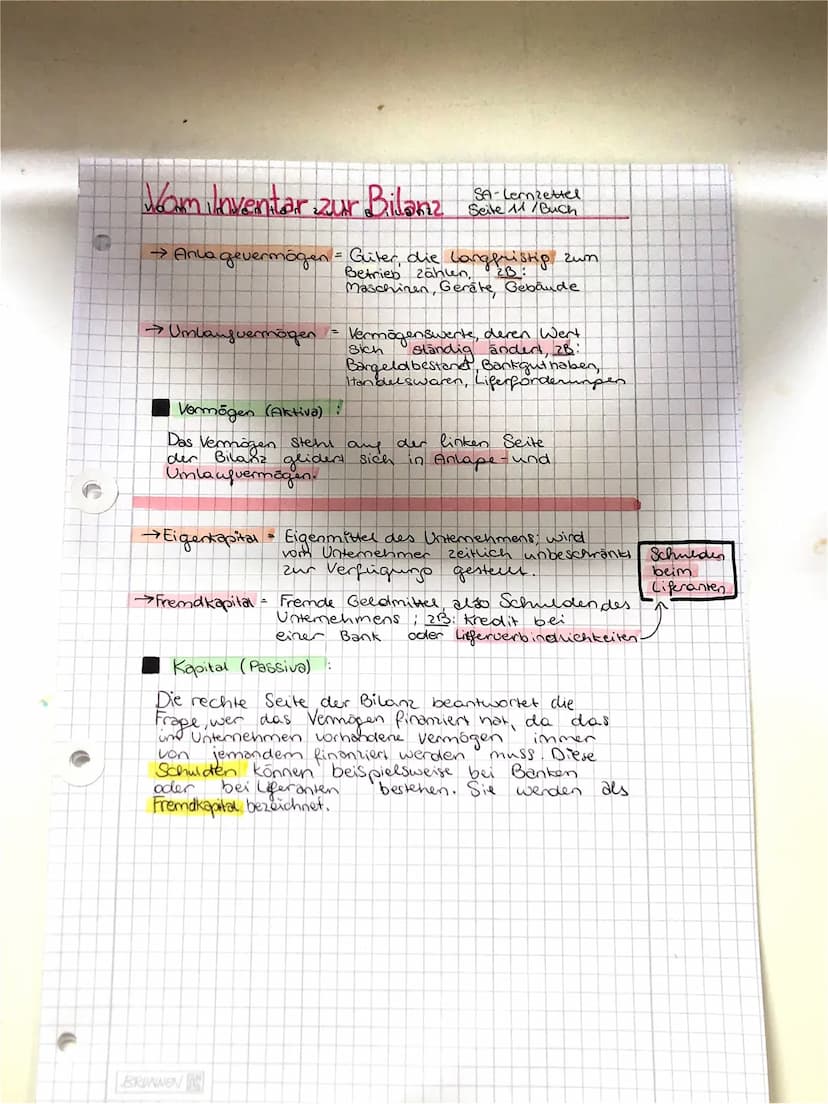 Vom Inventar zur Bilanz
SA-Lernzettel
Seite 11 / Buch
→ Anlagevermögen = Güter, die langfristig zum
Betrieb zählen, ZB:
Maschinen, Geräte, Gebäude
→ Umlaufvermögen = Vermögenswerte, deren Wert
sich ständig ändert, ZB:
Bargeldbestand, Bankguthaben,
Handelswaren, Liferforderungen
■ Vermögen (Aktiva) :
Das Vermögen steht auf der linken Seite
der Bilanz glidert sich in Anlage- und
Umlaufvermögen.
→ Eigenkapital = Eigenmittel des Unternehmens; wird
vom Unternehmer zeitlich unbeschränkt
zur Verfügung gestellt.
→ Fremdkapital = Fremde Geldmittel, also Schulden des
Unternehmens ; ZB: Kredit bei
einer Bank oder Liferverbindlichkeiten
Schulden
beim
Liferanten
■ Kapital (Passiva) :
Die rechte Seite der Bilanz beantwortet die
Frage, wer das Vermögen finanziert hat, da das
im Unternehmen vorhandene Vermögen immer
von jemandem finanziert werden muss. Diese
Schulden können beispielsweise bei Banken
oder bei Liferanten bestehen. Sie werden als
Fremdkapital bezeichnet.
BRUNNEN